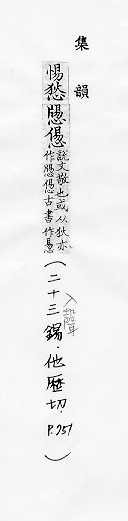 集韻
惕悐愓㥍說文敬也或从狄亦
作愓㥍古書作悬
(二十三錫.他歷切.
入聲
P.751)